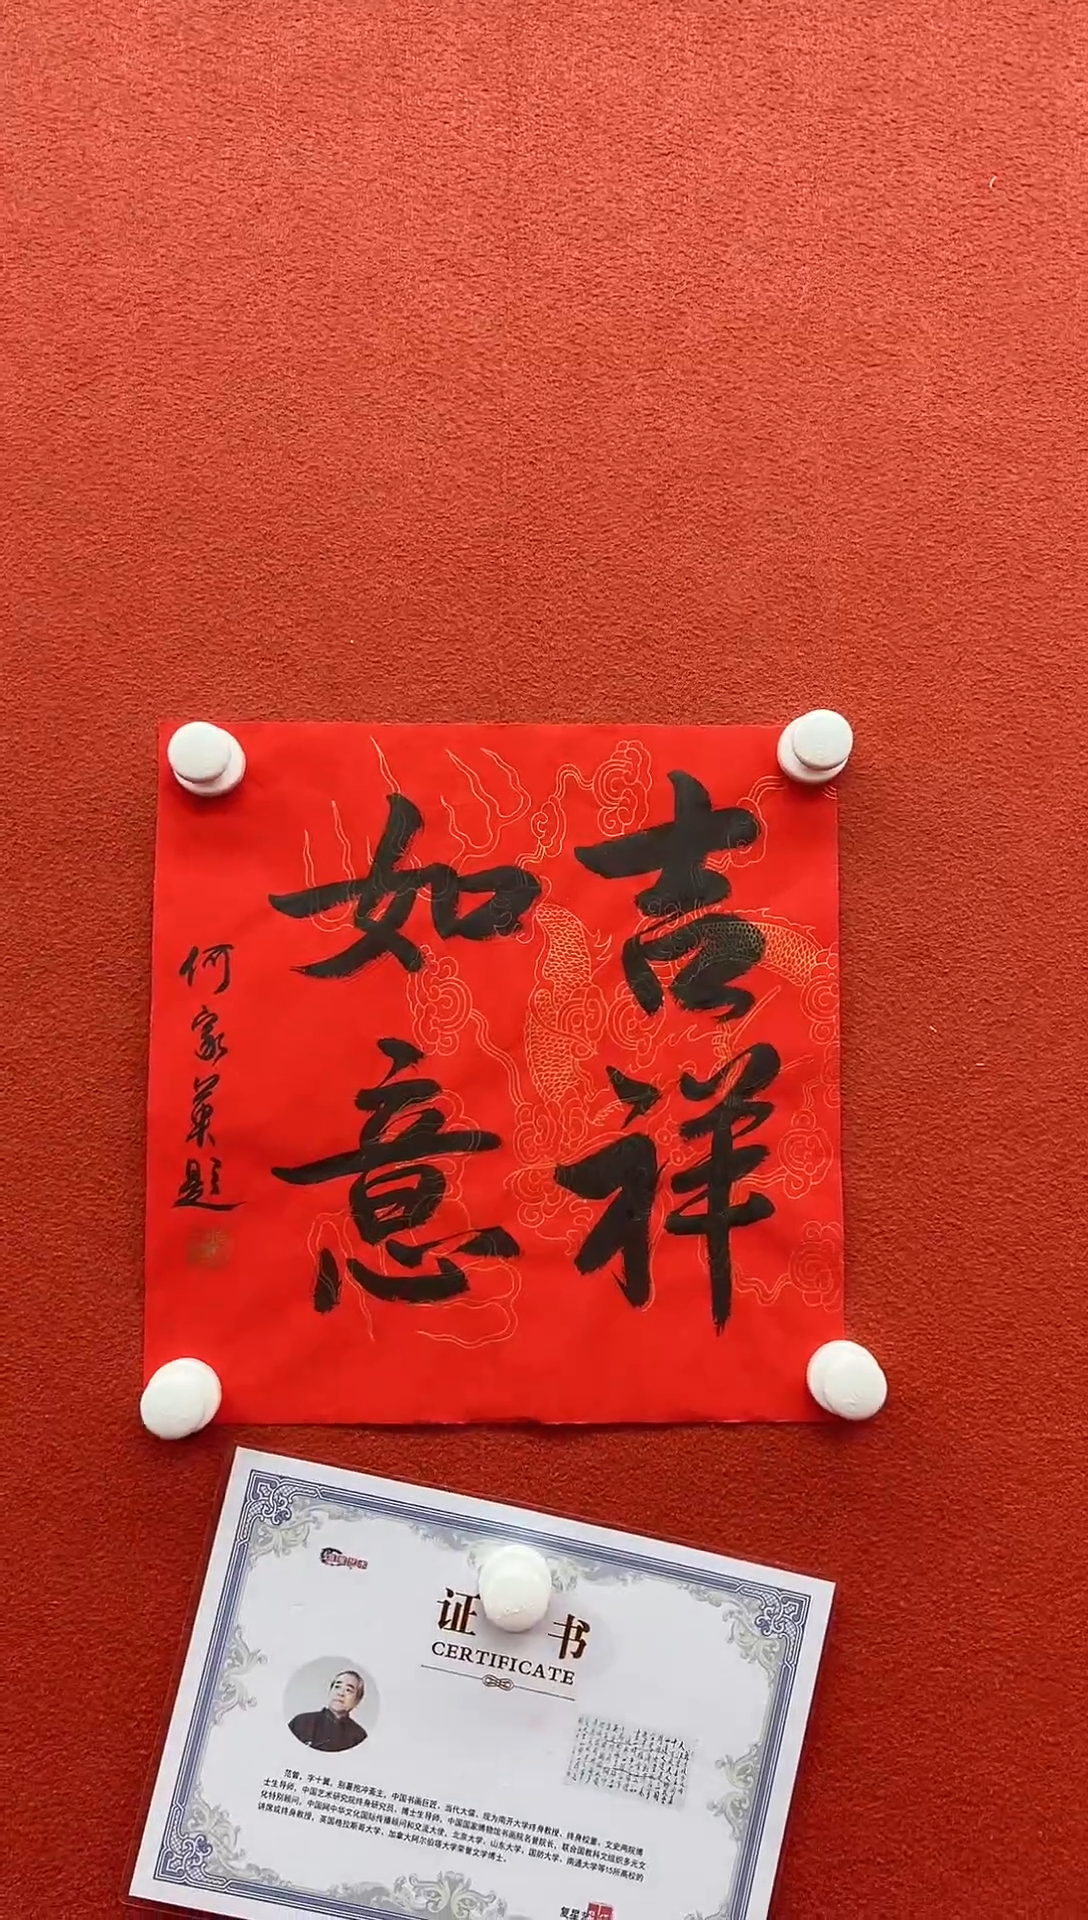 吉祥
如意
何家英题
证书
CERTIFICATE
范曾，字十翼，别署抱冲斋主，中国书画巨匠，当代大儒，现为南开大学终身教授、终身校董、文史两院博
士生导师，中国艺术研究院终身研究员、博士生导师，中国国家博物馆书画院名誉院长，联合国教科文组织多元文
化特别顾问，中国网中华文化国际传播顾问和交流大使，北京大学、山东大学、国防大学、南通大学等15所高校的
讲席或终身教授，英国格拉斯哥大学、加拿大阿尔伯塔大学荣誉文学博士。
复星艺